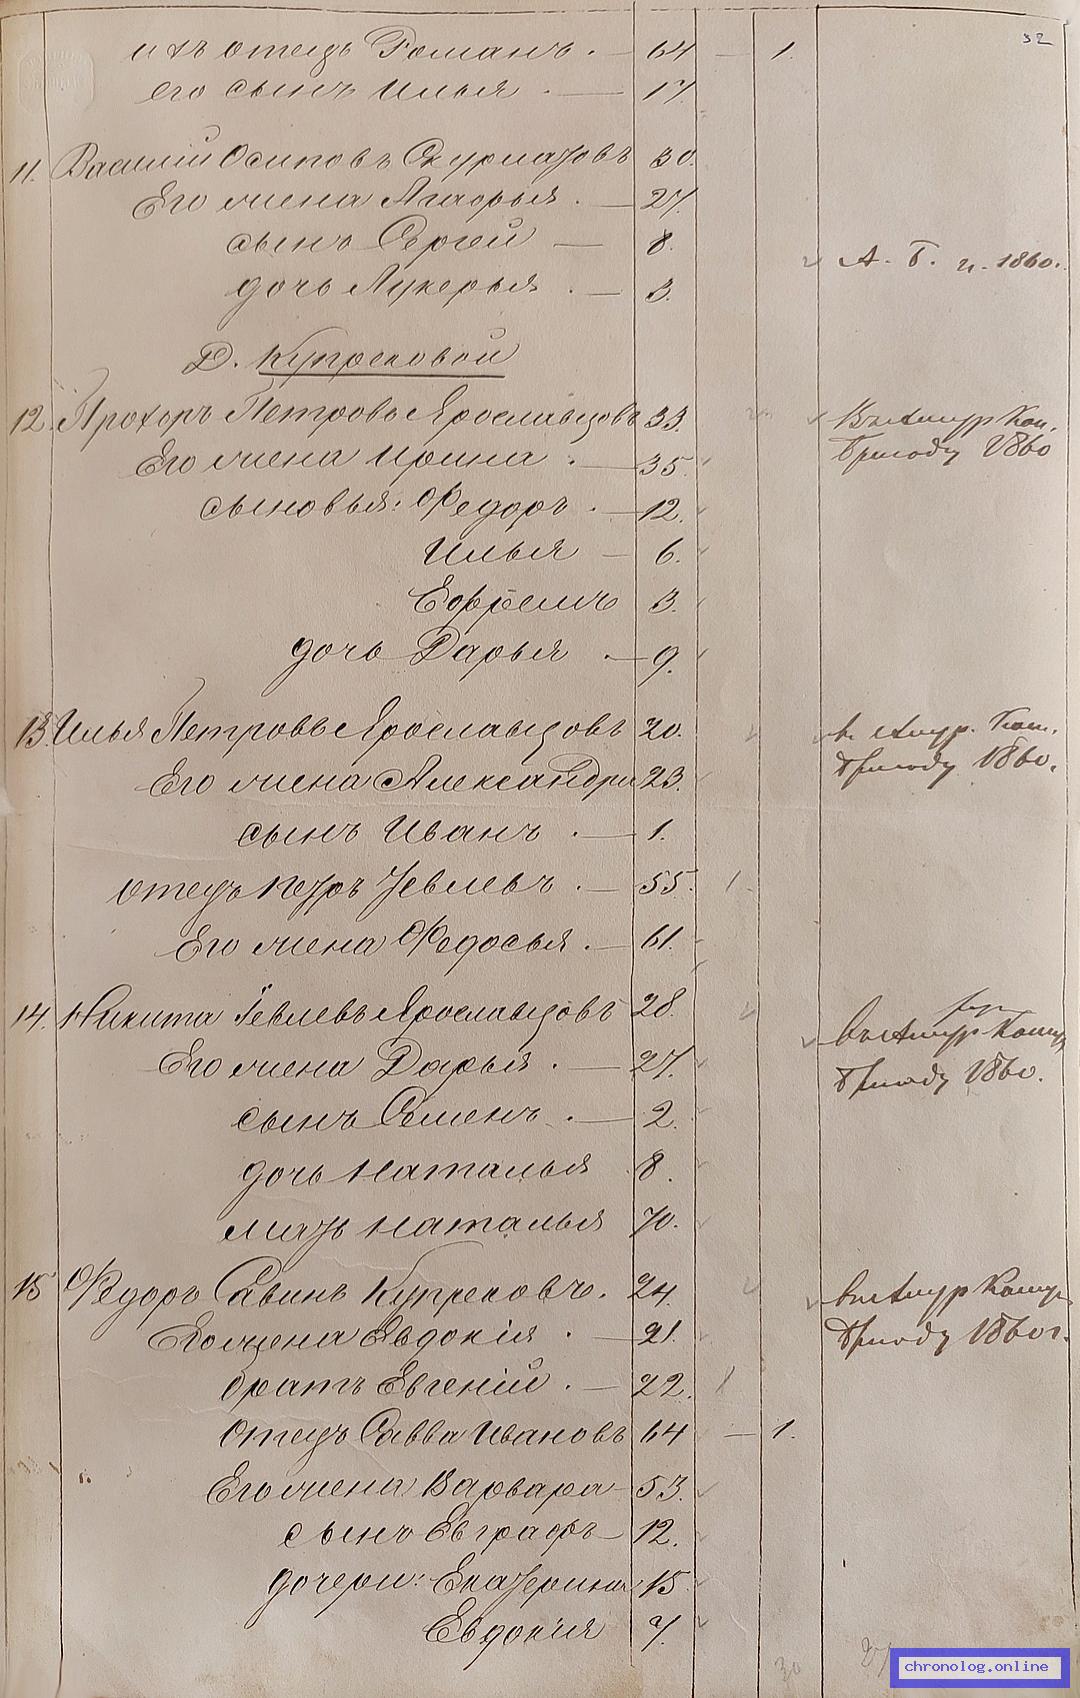 32
ихъ отецъ Романъ. — 64 — 1.
его сынъ Илья. — 17
11. Василій Осиповъ 30.
Его жена Агафья. — 27.
сынъ Сергей — 8.
дочь Лукерья. — 3.
А. Б. 1860.
Д. Купрековой
12. Прохоръ Петровъ Ярославцовъ 33.
Въ Амур Кон.
Его жена Ирина. — 35.
бригаду 1860
сыновья: Федоръ. — 12.
Илья — 6.
Ефремъ 3.
дочь Дарья. — 9.
13. Илья Петровъ Ярославцовъ 20.
в. Амур. Кон.
Его жена Александра 23.
бригаду 1860.
сынъ Иванъ. — 1.
отецъ Петръ Іевлевъ. — 55. 1.
Его жена Федосья. — 61.
14. Никита Іевлевъ Ярославцовъ 28.
въ Амур Конну
Его жена Дарья. — 27.
бригаду 1860.
сынъ Семенъ. — 2.
дочь Наталья 8.
мать Наталья 70.
15 Федоръ Савинъ Купрековъ. 24.
въ Амур Конну
Его жена Евдокія. — 21.
бригаду 1860 г.
братъ Евгеній. — 22. 1
Отецъ Савва Ивановъ 64 — 1.
Его жена Варвара — 53.
сынъ Евграфъ — 12.
дочери: Екатерина 15
Евдокія 7.
30
chronolog.online